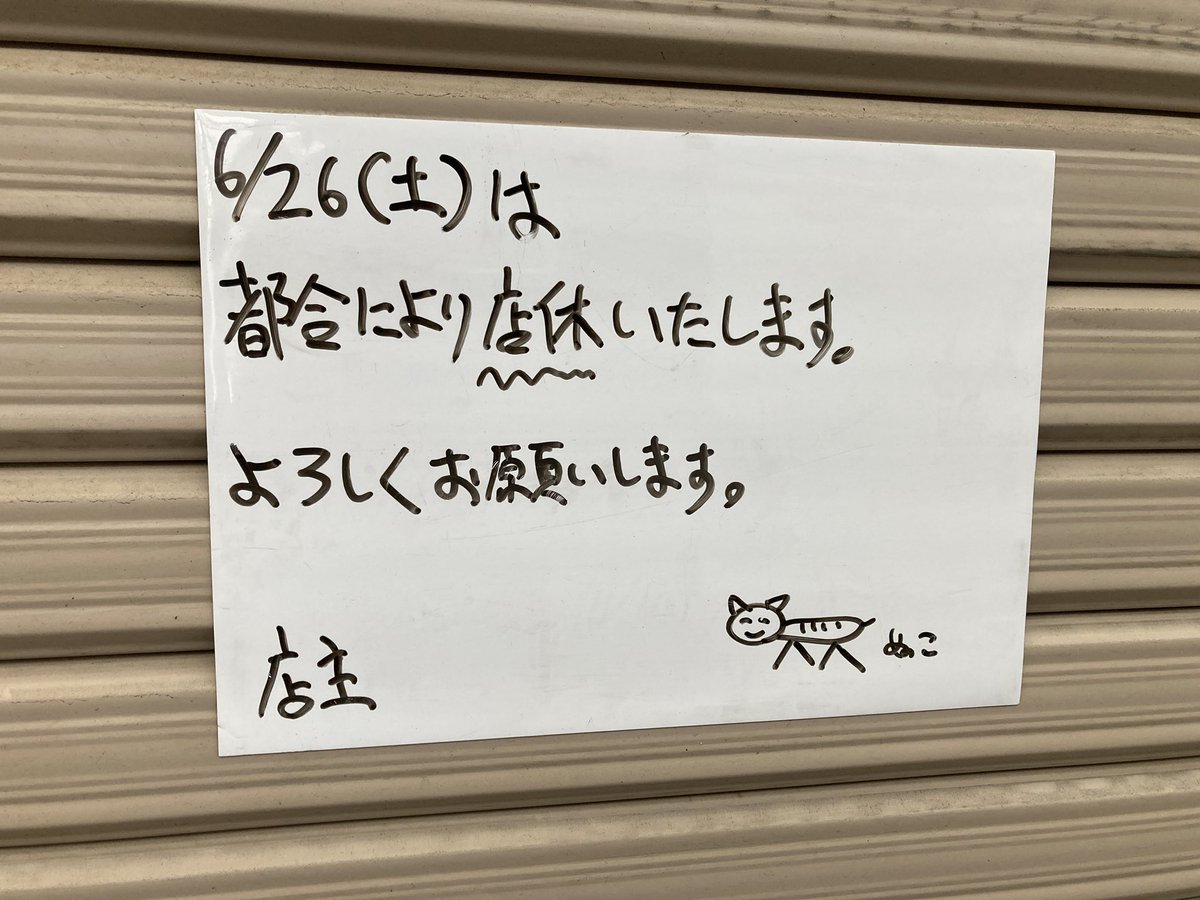 6/26(土)は
都合により店休いたします。
よろしくお願いします。
店主
ぬこ